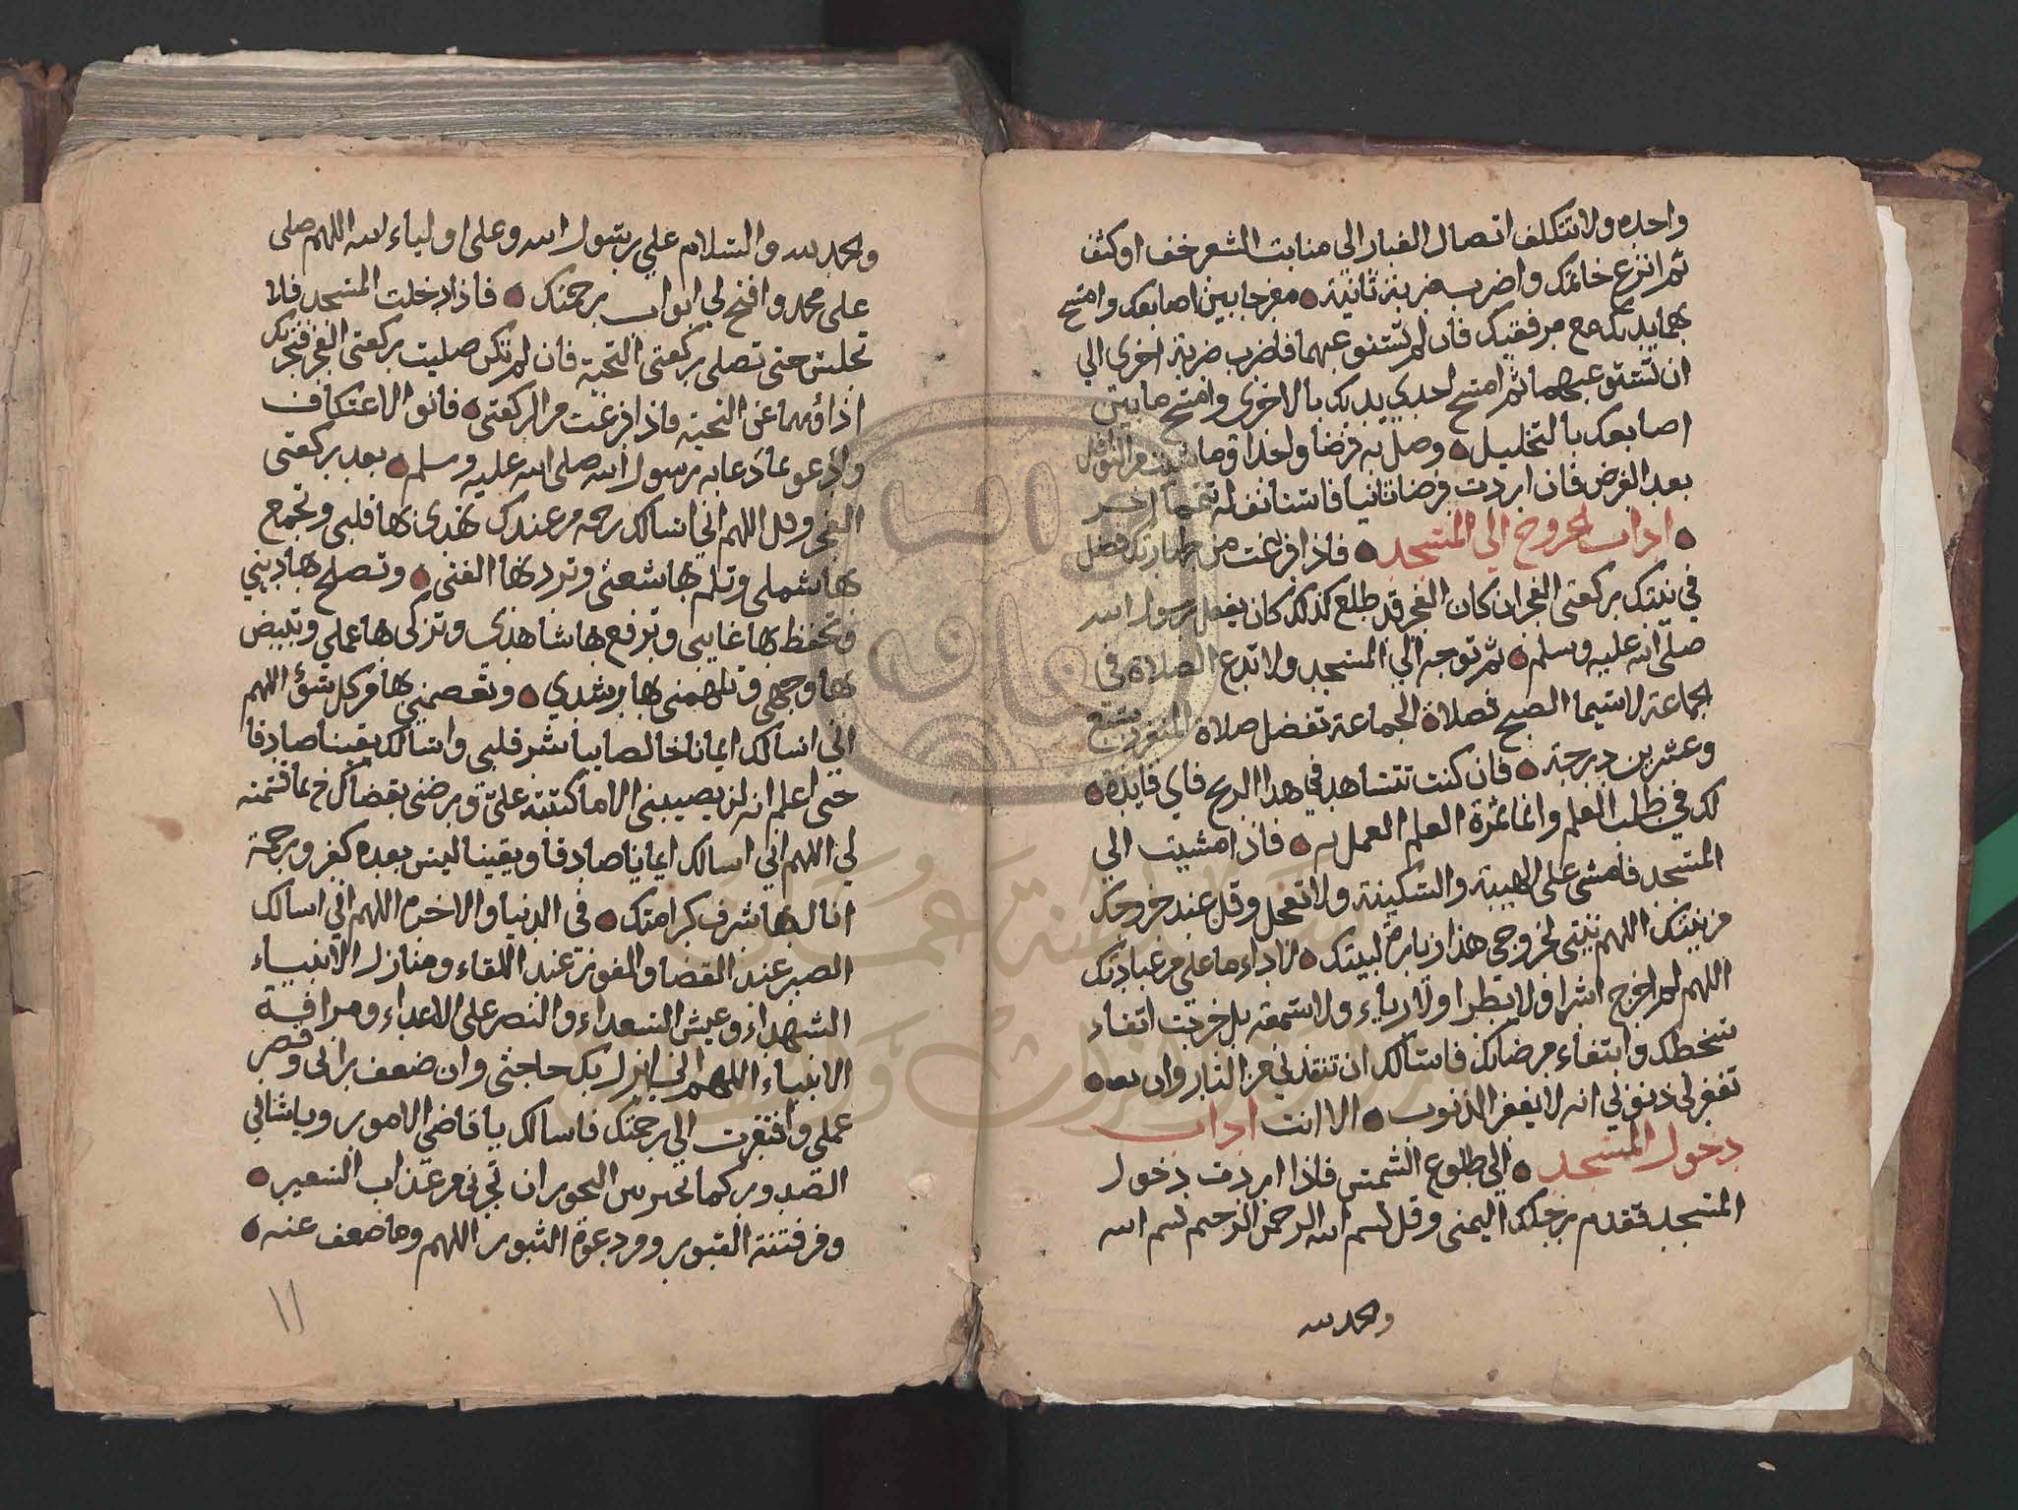 واحده ولا تتكلف اتصال الغبار الى منابت الشعر خف او كثف
ثم انزع خاتمك واضرب ضربة ثانية مفرجا بين اصابعك وامسح
بها يديك مع مرفقيك فان لم تستوعبهما فاضرب ضربة اخرى الي
ان تستوعبهما ثم امسح احدي يديك بالاخرى وامسح ما بين
اصابعك بالتخليل وصل به فرضا واحدا وما شيت من النوافل
بعد الفرض فان اردت فرضا ثانيا فاستانف له تيمما اخر
اداب الخروج الي المسجد فاذا فرغت من طهارتك فصل
في بيتك ركعتى الفجر ان كان الفجر قد طلع كذلك كان يفعل رسول الله
صلى الله عليه وسلم ثم توجه الي المسجد ولا تدع الصلاة في
الجماعة لاسيما الصبح فصلاة الجماعة تفضل صلاة المنفرد بسبع
وعشرين درجة فان كنت تتساهل في هذا الربح فاي فايدة
لك في طلب العلم وانما ثمرة العلم العمل به فاذا مشيت الي
المسجد فامشى على الهيبة والسكينة ولا تعجل وقل عند خروجك
من بيتك اللهم نيتى لخروجى هذا زيارة لبيتك لاداء ما على من عبادتك
اللهم لم اخرج اشرا ولا بطرا ولا رياء ولا سمعة بل خرجت اتقاء
سخطك وابتغاء مرضاتك فاسالك ان تنقذني من النار وان
تغفر لى ذنوبي انه لا يغفر الذنوب الا انت اداب
دخول المسجد الي طلوع الشمس فاذا اردت دخول
المسجد فقدم رجلك اليمنى وقل بسم الله الرحمن الرحيم بسم الله
والحمد لله
والحمد لله والسلام على رسول الله وعلى اولياء الله اللهم صلى
على محمد وافتح لي ابواب رحمتك فاذا دخلت المسجد فلا
تجلس حتى تصلى ركعتى التحية فان لم تكن صليت ركعتى الفجر فتجزيك
اذاؤهما عن التحية فاذا فرغت من الركعتى فانو الاعتكاف
وادعو بما دعا به رسول الله صلى الله عليه وسلم بعد ركعتى
الفجر وقل اللهم اني اسالك رحمة من عندك تهدى بها قلبى وتجمع
بها شملى وتلم بها شعثى وترد بها الفتى وتصلح بها ديني
وتحفظ بها غايبى وترفع بها شاهدى وتزكى بها عملي وتبيض
بها وجهى وتلهمنى بها رشدي وتعصمني بها من كل سؤ اللهم
اني اسالك ايمانا خالصا يباشر قلبى واسالك يقينا صادقا
حتى اعلم انه لن يصيبنى الا ما كتبته على ورضنى بقضاك بما قسمته
لي اللهم اني اسالك ايمانا صادقا ويقينا ليس بعده كفر ورحمة
انال بها شرف كرامتك في الدنيا والاخره اللهم اني اسالك
الصبر عند القضا والفوز عند اللقاء ومنازل الانبياء
الشهداء وعيش السعداء والنصر على الاعداء ومرافقة
الانبياء اللهم اني انزل بك حاجتى وان ضعف رائى وقصر
عملى وافتقرت الي رحمتك فاسالك يا قاضي الامور ويا شافي
الصدور كما تجير بين البحور ان تجرنى من عذاب السعير
ومن فتنة القبور ومن دعوة الثبور اللهم وما ضعف عنه
١١